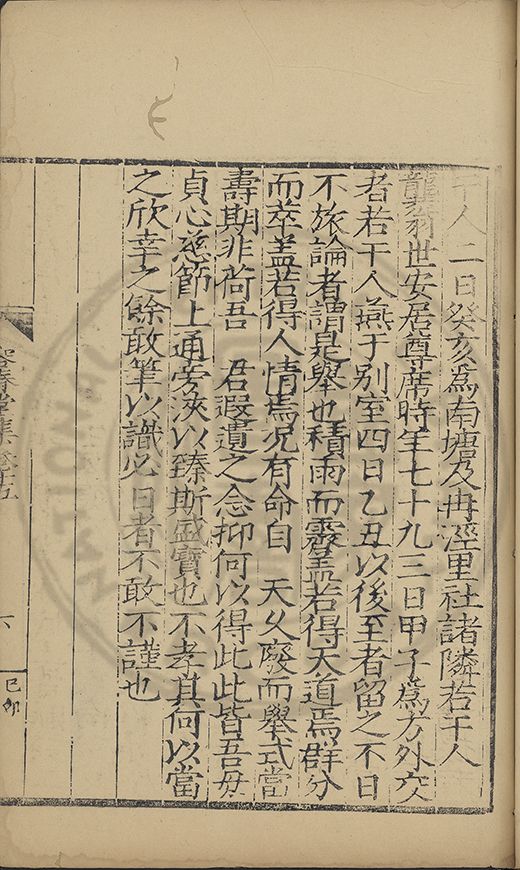 干人二日癸亥為南塘及冉涇里社諸隣若干人
龔翁世安居尊席時年七十九三日甲子為方外交
者若干人燕于别室四日乙丑以後至者留之不日
不旅論者謂是舉也積雨而霽盖若得天道焉群分
而萃盖若得人情焉况有命自 天久廢而舉式當
壽期非荷吾 君遐遺之念抑何以得此此皆吾母
貞心慈節上通旁浹以臻斯盛寶也不孝其何以當
之欣幸之餘敢筆以識必日者不敢不謹也
容春堂集
六